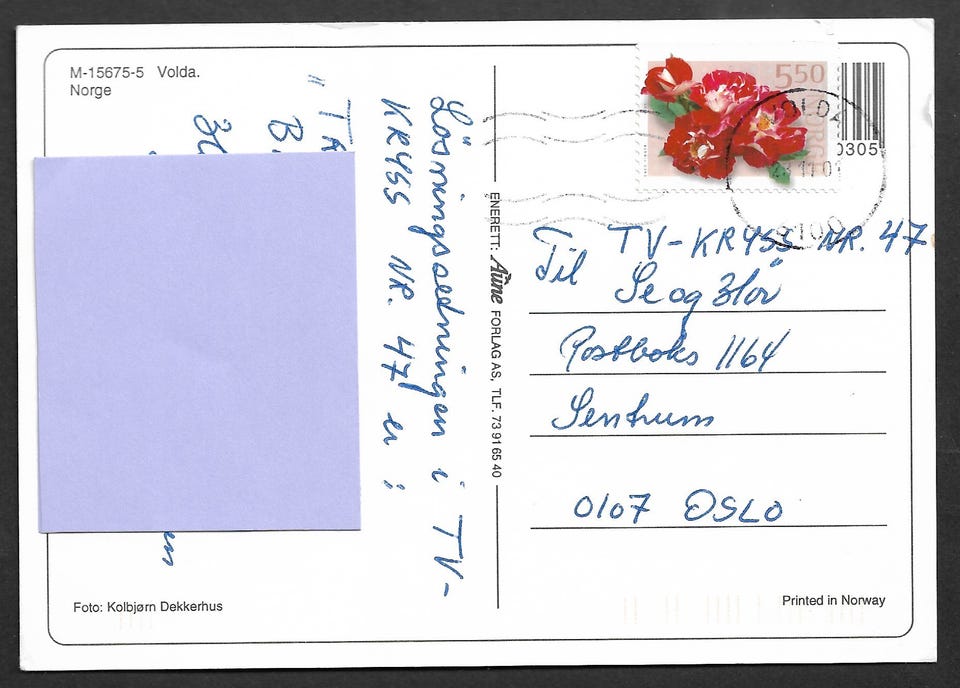 M-15675-5 Volda.
Norge
Lösningssedningen i TV-
KRYSS NR. 47 er :
B.
ENERETT: Aune FORLAG AS, TLF. 73 91 65 40
550
NORGE
0305
VOLDA
6100
Til TV-KRYSS NR. 47
Se og Hör
Postboks 1164
Sentrum
0107 OSLO
Foto: Kolbjørn Dekkerhus
Printed in Norway